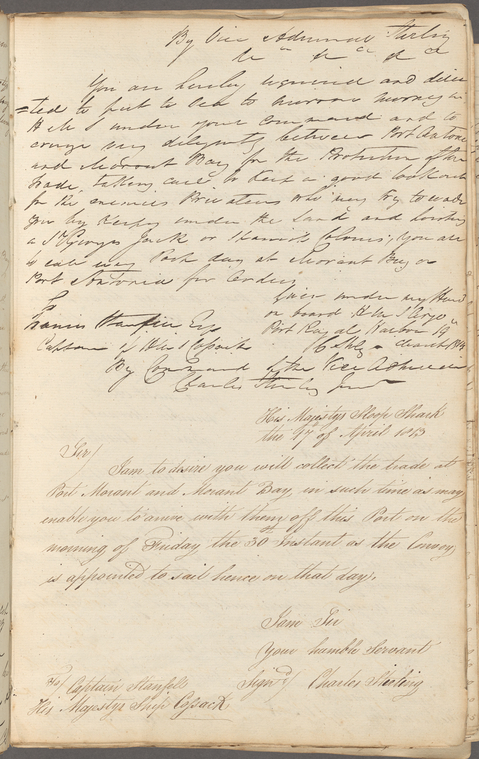 By Vice Admiral Stirling
&c &c &c
You are hereby required and direc
=ted to put to Sea to morrow morning in
H M S under your command and to
cruize very diligently between Port Antonio
and Morant Bay for the Protection of the
trade, taking care to keep a good look out
for the enemies Privateers who may try to
you by keeping under the Land and hoisting
a St Georges Jack or Spanish Colours; You are
to call every Post day at Morant Bay or
Port Antonio for Orders
Given under my Hand
on board H M S Argo
Port Royal Harbor 19th
March 1813
To
Francis Stanfell Esqr
Captain of H M S Cossack
C Stg
By Command of the Vice Admiral
Charles Stirling Junr
His Majestys Sloop Shark
the 17th of April 1813
Sir/
I am to desire you will collect the trade at
Port Morant and Morant Bay in such time as may
enable you to arrive with them off this Port on the
morning of Friday the 30 Instant as the Convoy
is appointed to sail hence on that day.
I am Sir
Your humble Servant
Signd/ Charles Stirling
To/ Captain Stanfell
His Majestys Ship Cossack